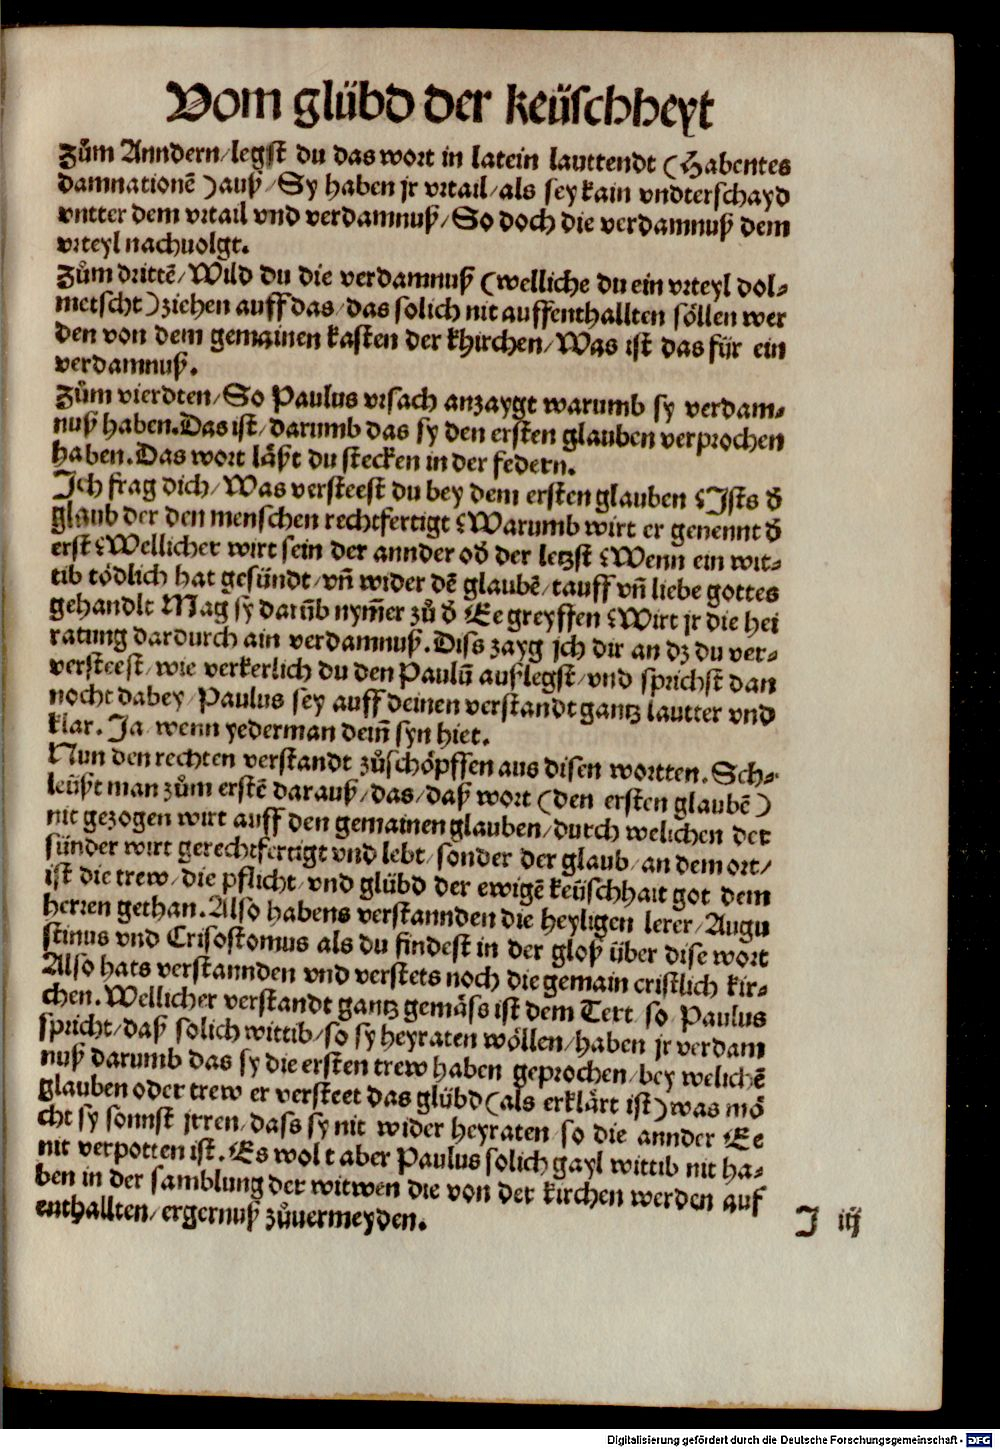 Vom glübd der keüschheyt
Zům Anndern/legst du das wort in latein lauttendt (Habentes
damnationē) auß/Sy haben jr vrtail/als sey kain vndterschayd
vntter dem vrtail vnd verdamnuß/So doch die verdamnuß dem
vrteyl nachuolgt.
Zům drittē/Wild du die verdamnuß (welliche du ein vrteyl dol⸗
metscht) ziehen auff das/das solich nit auffenthallten söllen wer
den von dem gemainen kasten der khirchen/Was ist das für ein
verdamnuß.
Zům vierdten/So Paulus vrsach anzaygt warumb sy verdam⸗
nuß haben. Das ist/darumb das sy den ersten glauben verprochen
haben. Das wort läßt du stecken in der federn.
Ich frag dich/Was versteest du bey dem ersten glauben ? Ists d̄
glaub der den menschen rechtfertigt ? Warumb wirt er genennt d̄
erst ? Wellicher wirt sein der annder od̄ der letzst ? Wenn ein wit⸗
tib tödlich hat gesündt/vn̄ wider dē glaubē/tauff vn̄ liebe gottes
gehandlt Mag sy darūb nym̄er zů d̄ Ee greyffen ? Wirt jr die hei
ratung dardurch ain verdamnuß. Diss zayg jch dir an dz du ver⸗
versteest/wie verkerlich du den Paulū außlegst/vnd sprichst dan
nocht dabey/Paulus sey auff deinen verstandt gantz lautter vnd
klar. Ja wenn yederman dein̄ syn hiet.
Nun den rechten verstandt zůschöpffen aus disen wortten. Sch⸗
leüßt man zům erstē darauß/das/daß wort (den ersten glaubē)
nit gezogen wirt auff den gemainen glauben/durch welichen der
sünder wirt gerechtfertigt vnd lebt/sonder der glaub/an dem ort/
ist die trew/die pflicht/vnd glübd der ewigē keüschhait got dem
herren gethan. Also habens verstannden die heyligen lerer/Augu
stinus vnd Crisostomus als du findest in der gloß über dise wort
Also hats verstannden vnd verstets noch die gemain cristlich kir⸗
chen. Wellicher verstandt gantz gemäss ist dem Text so Paulus
spricht/daß solich wittib/so sy heyraten wöllen/haben jr verdam
nuß darumb das sy die ersten trew haben geprochen/bey welichē
glauben oder trew er versteet das glübd (als erklärt ist) was mö
cht sy sonnst jrren/dass sy nit wider heyraten so die annder Ee
nit verpotten ist. Es wolt aber Paulus solich gayl wittib nit ha⸗
ben in der samblung der witwen die von der kirchen werden auf
enthallten/ergernuß zůuermeyden.
J iij
Digitalisierung gefördert durch die Deutsche Forschungsgemeinschaft - DFG